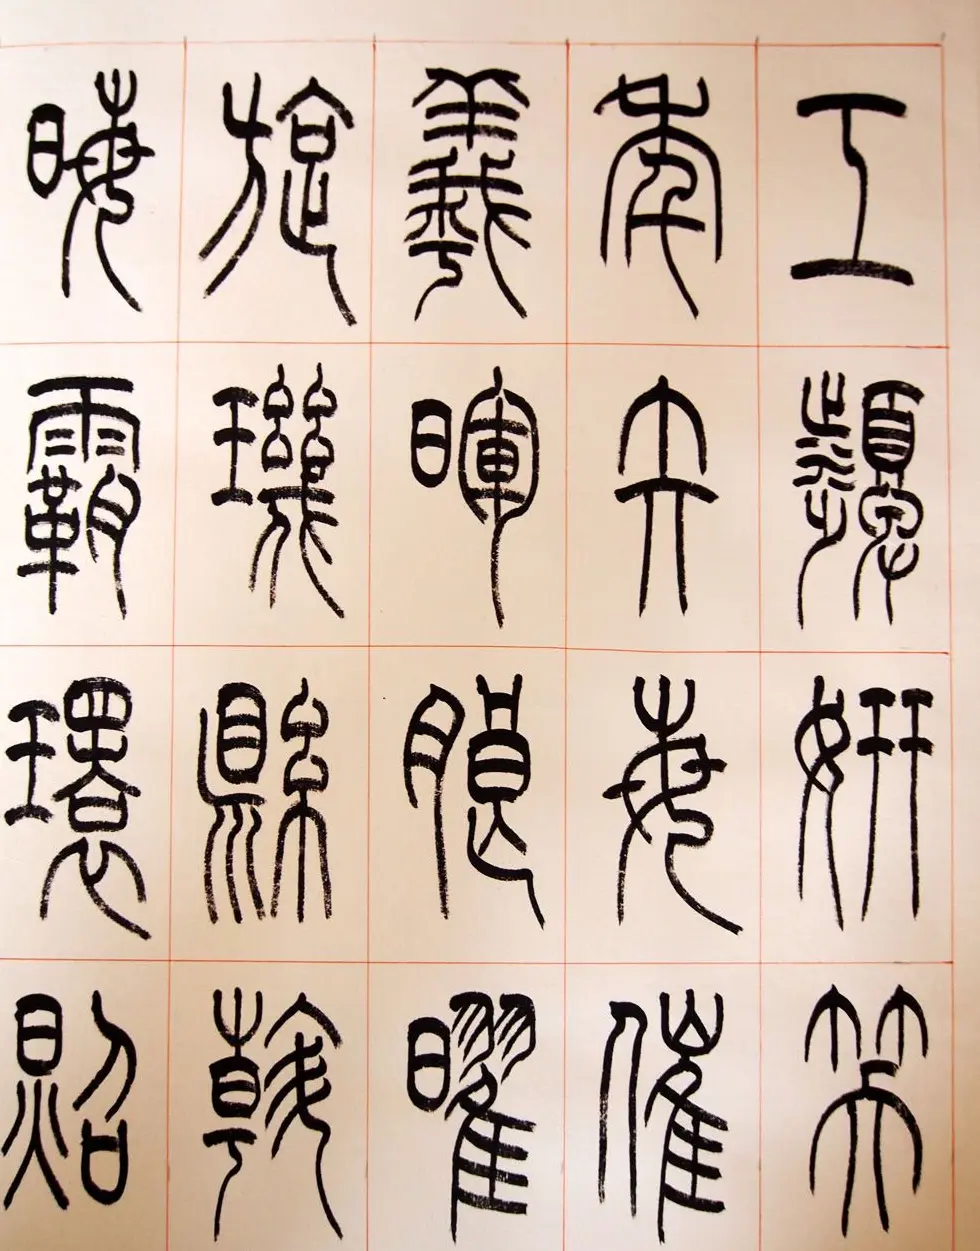 工顰妍笑
年矢每催
羲暉朗曜
旋璣縣斡
晦霸環照